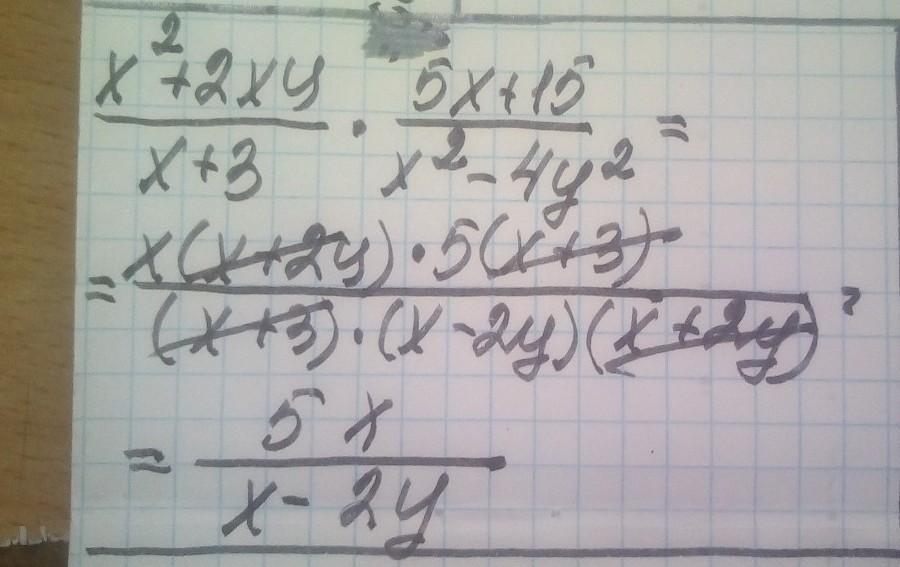 x²+2xy / x+3 · 5x+15 / x²-4y² =
= x(x+2y)·5(x+3) / (x+3)·(x-2y)(x+2y) =
= 5x / x-2y